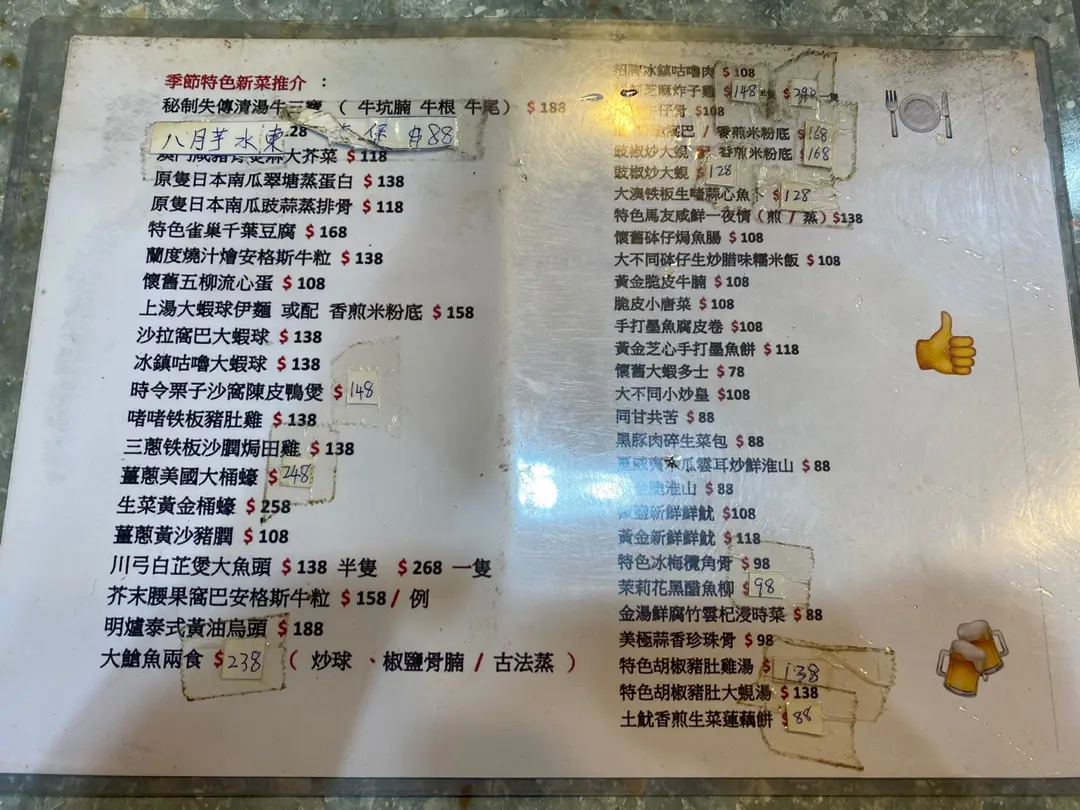 季節特色新菜推介 ：
秘制失傳清湯牛三寶 （ 牛坑腩 牛根 牛尾） $ 188
八月芋水東 煲 $88
28
大芥菜 $ 118
原隻日本南瓜翠塘蒸蛋白 $ 138
原隻日本南瓜豉蒜蒸排骨 $ 118
特色雀巢千葉豆腐 $ 168
蘭度燒汁燴安格斯牛粒 $ 138
懷舊五柳流心蛋 $ 108
上湯大蝦球伊麵 或配 香煎米粉底 $ 158
沙拉窩巴大蝦球 $ 138
冰鎮咕嚕大蝦球 $ 138
時令栗子沙窩陳皮鴨煲 $ 148
啫啫铁板豬肚雞 $ 138
三蔥铁板沙膶焗田雞 $ 138
薑蔥美國大桶蠔 $ 248
生菜黃金桶蠔 $ 258
薑蔥黃沙豬膶 $ 108
川弓白芷煲大魚頭 $ 138 半隻 $ 268 一隻
芥末腰果窩巴安格斯牛粒 $ 158 / 例
明爐泰式黃油烏頭 $ 188
大鱠魚兩食 $ 238 （ 炒球 、椒鹽骨腩 / 古法蒸 ）
招牌冰鎮咕嚕肉 $ 108
芝麻炸子雞 $ 148 $
牛仔骨 $108
窩巴 / 香煎米粉底 $ 168
豉椒炒大蜆 配 香煎米粉底 $ 168
豉椒炒大蜆 $ 128
大澳铁板生啫蒜心魚卜 $ 128
特色馬友咸鮮一夜情（煎 / 蒸）$138
懷舊砵仔焗魚腸 $ 108
大不同砵仔生炒腊味糯米飯 $ 108
黃金脆皮牛腩 $ 108
脆皮小唐菜 $ 108
手打墨魚腐皮卷 $108
黃金芝心手打墨魚餅 $ 118
懷舊大蝦多士 $ 78
大不同小炒皇 $108
同甘共苦 $ 88
黑豚肉碎生菜包 $ 88
瓜雲耳炒鮮淮山 $ 88
淮山 $ 88
椒鹽新鮮鮮魷 $108
黃金新鮮鮮魷 $ 118
特色冰梅欖角骨 $ 98
茉莉花黑醋魚柳 $ 98
金湯鮮腐竹雲杞浸時菜 $ 88
美極蒜香珍珠骨 $ 98
特色胡椒豬肚雞湯 $ 138
特色胡椒豬肚大蜆湯 $ 138
土魷香煎生菜蓮藕餅 $ 88